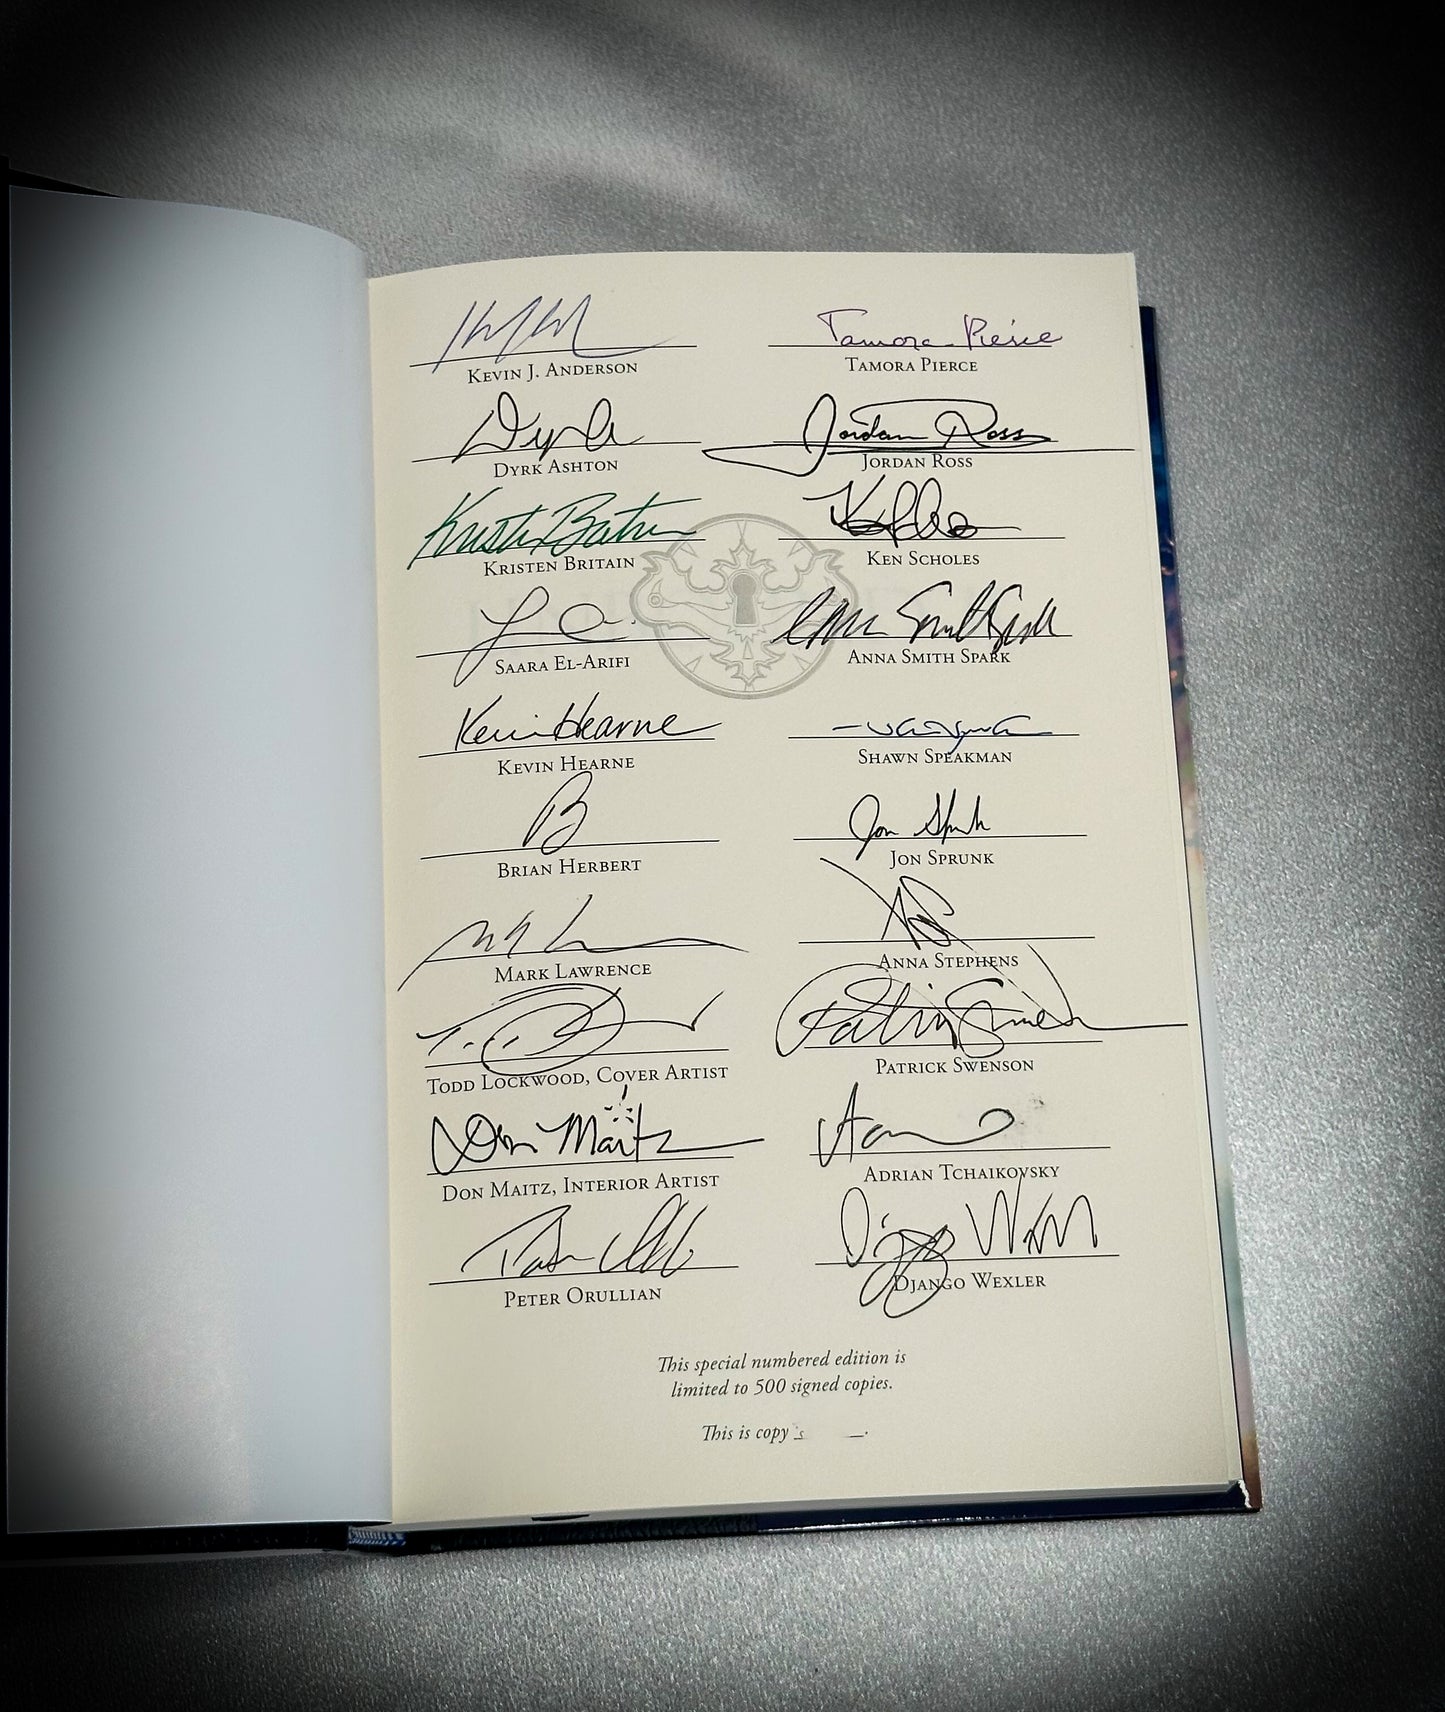 Kevin J. Anderson
Dyrk Ashton
Kristen Britain
Saara El-Arifi
Kevin Hearne
Kevin Hearne
Brian Herbert
Mark Lawrence
Todd Lockwood, Cover Artist
Don Maitz
Don Maitz, Interior Artist
Peter Orullian
Tamora Pierce
Tamora Pierce
Jordan Ross
Jordan Ross
Ken Scholes
Anna Smith Spark
Shawn Speakman
Jon Sprunk
Jon Sprunk
Anna Stephens
Patrick Swenson
Adrian Tchaikovsky
Django Wexler
This special numbered edition is
limited to 500 signed copies.
This is copy